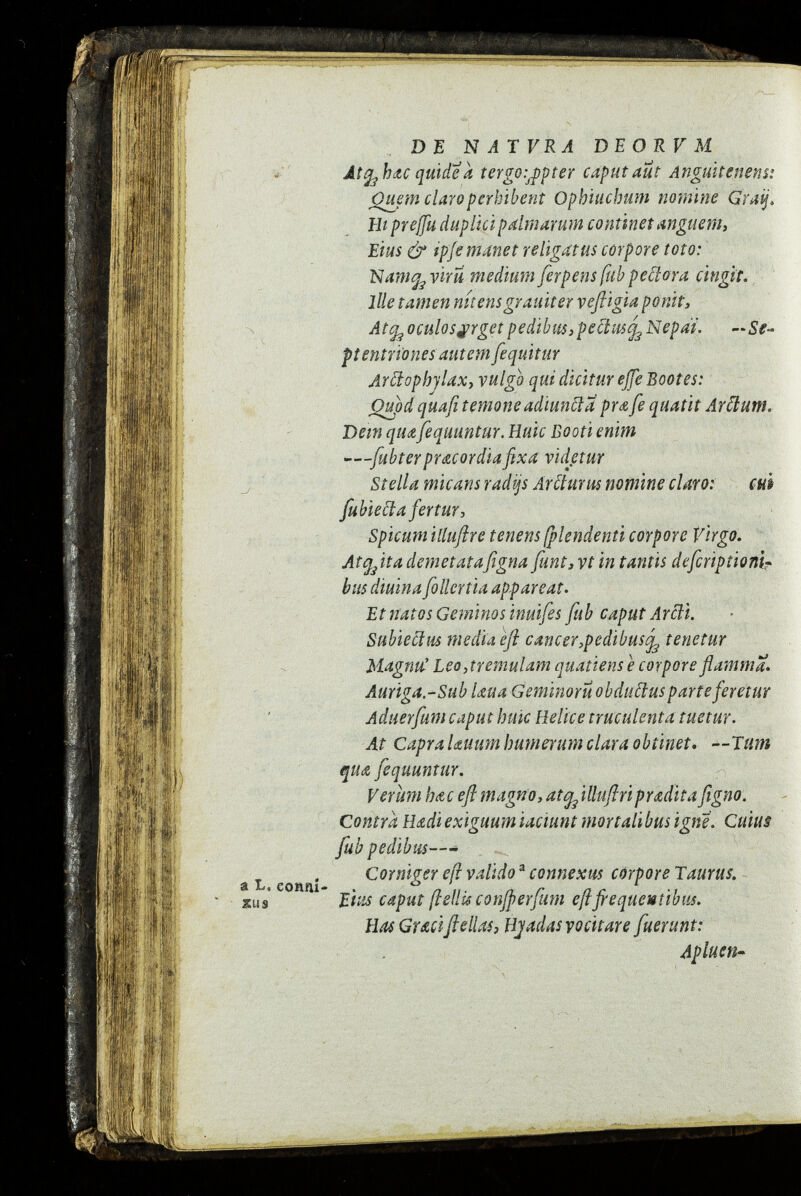 DE NATVRA DEORVM
Atq; hæc quidē à tergo: ꝓpter caput aūt Anguitenens:
Quem claro perhibent Ophiuchum nomine Graij.
Hi pressu duplici palmarum continet anguem,
Eius & ipse manet religatus corpore toto:
Namq; virū medium serpens sub pectora cingit.
Ille tamen nitens grauiter vestigia ponit,
Atq; oculos vrget pedibus, pectusq; Nepai. --Se-
ptentriones autem sequitur
Arctophylax, vulgò qui dicitur esse Bootes:
Quòd quasi temone adiunctā præ se quatit Arctum.
Dein quæ sequuntur. Huic Booti enim
---subter præcordia fixa videtur
Stella micans radijs Arcturus nomine claro: cui
subiecta fertur,
Spicum illustre tenens splendenti corpore Virgo.
Atq; ita demetata signa sunt, vt in tantis descriptioni-
bus diuina sollertia appareat.
Et natos Geminos inuises sub caput Arcti.
Subiectus media est cancer, pedibusq; tenetur
Magnu' Leo, tremulam quatiens è corpore flammā.
Auriga.-Sub læua Geminorū obductus parte feretur
Aduersum caput huic Helice truculenta tuetur.
At Capra læuum humerum clara obtinet. --Tum
quæ sequuntur.
Verùm hæc est magno, atq; illustri prædita signo.
Contrà Hædi exiguum iaciunt mortalibus ignē. Cuius
sub pedibus---
Corniger est valido ª connexus corpore Taurus.
a L. conni-
xus
Eius caput stellis conspersum est frequentibus.
Has Græci stellas, Hyadas vocitare fuerunt:
Apluen-